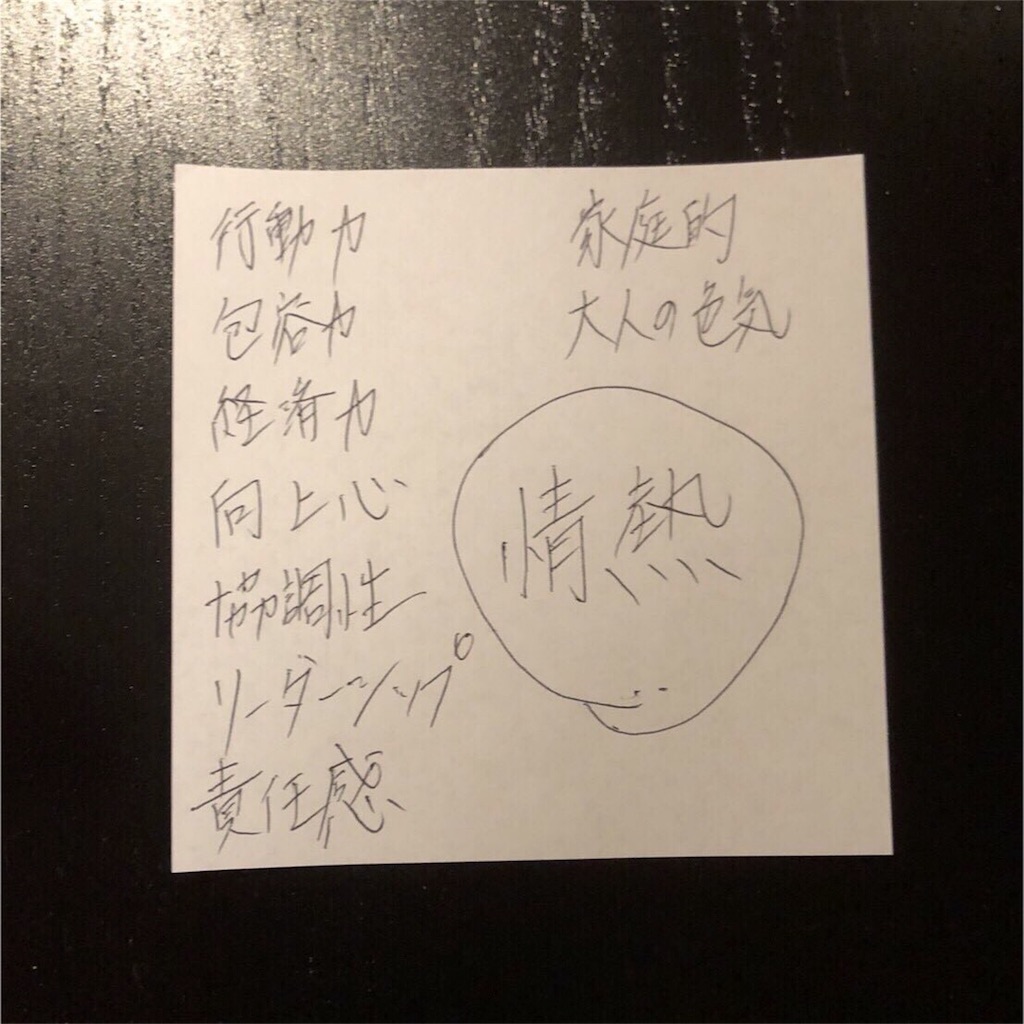 行動力
包容力
経済力
向上心
協調性
リーダーシップ
責任感
家庭的
大人の色気
情熱